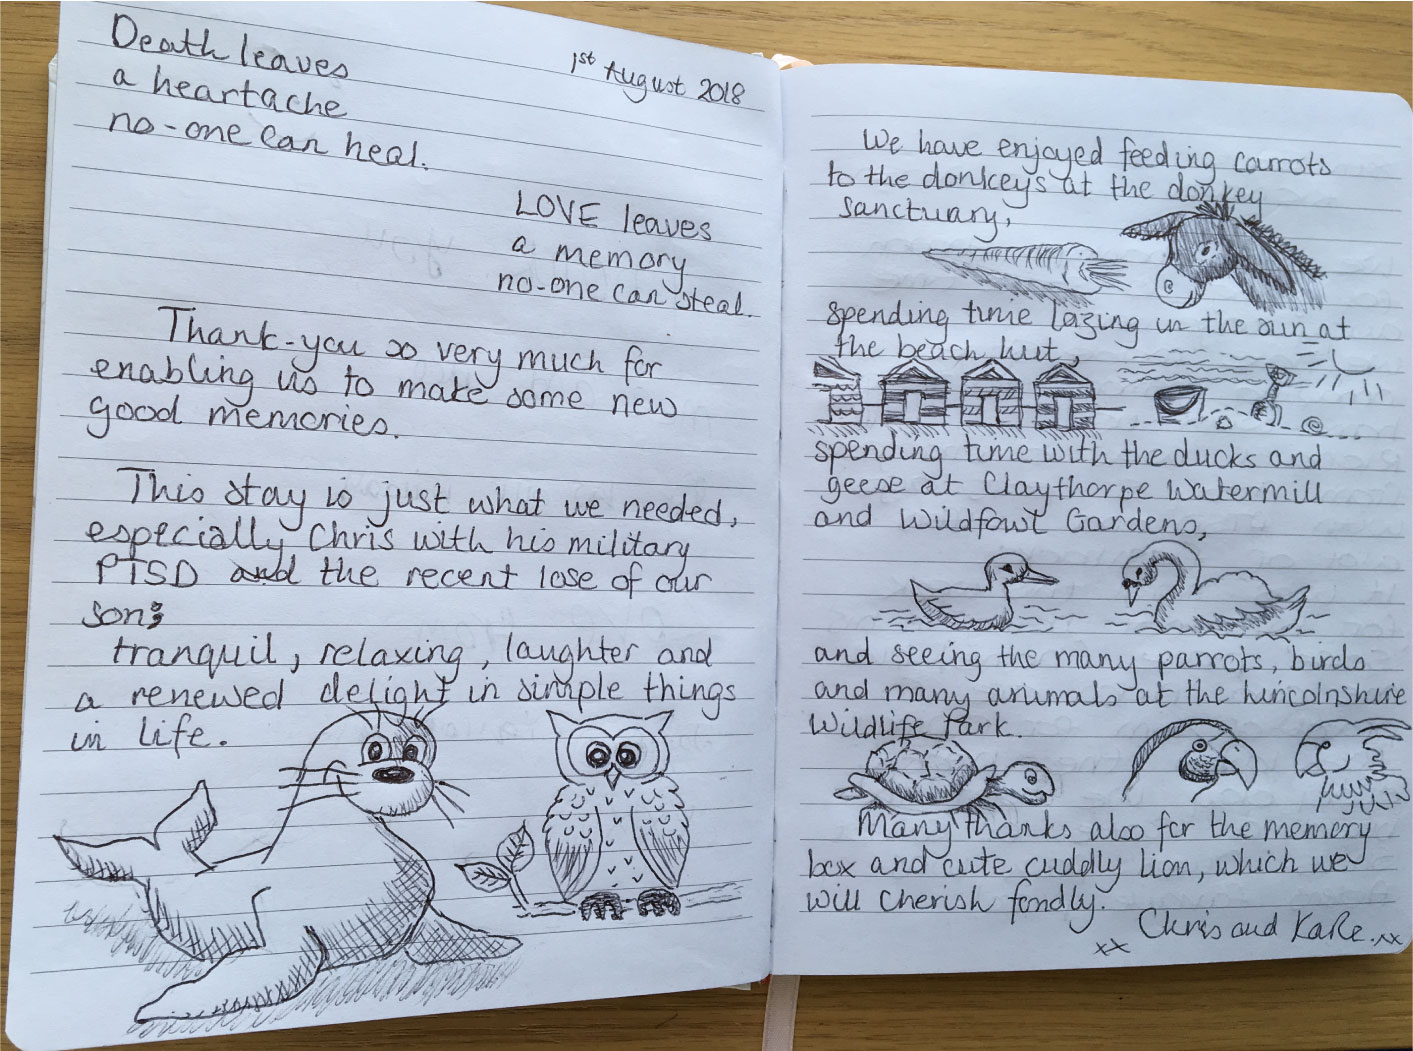 1st August 2018
Death leaves
a heartache
no-one can heal.
LOVE leaves
a memory
no-one can steal.
Thank-you so very much for
enabling us to make some new
good memories.
This stay is just what we needed,
especially Chris with his military
PTSD and the recent lose of our
son;
tranquil, relaxing, laughter and
a renewed delight in simple things
in life.
We have enjoyed feeding carrots
to the donkeys at the donkey
sanctuary,
spending time lazing in the sun at
the beach hut,
spending time with the ducks and
geese at Claythorpe Watermill
and Wildfowl Gardens,
and seeing the many parrots, birds
and many animals at the Lincolnshire
Wildlife Park.
Many thanks also for the memory
box and cute cuddly lion, which we
will cherish fondly.
Chris and Kare. xx
xx